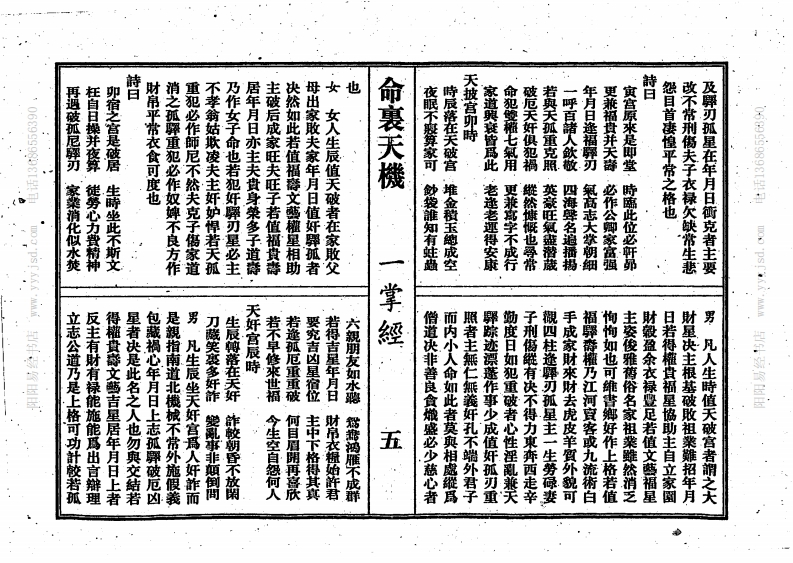 及驛刃孤星在年月日衝克者主要
改不常刑傷夫子衣祿欠缺常生悲
怨目首凄惶平常之格也
詩曰
寅宮原來是卽堂　時臨此位必軒昴
更兼福貴并天壽　必作公卿家富强
年月日逢福驛刃　氣高志大掌朝綱
一呼百諸人欽敬　四海聲名遍播揚
若與天孤重克照　英豪旺氣盡潛藏
破厄天奸俱犯禍　縱然慷慨也尋常
命犯雙權七氣用　更兼寫字不成行
家道興衰皆爲此　老逢老運得安康
天披宮卯時
時辰落在天破宮　堆金積玉總成空
夜眠不暇算家可　鈔袋誰知有蛀蟲
男　凡人生時值天破宮者謂之大
財星决主根基破敗祖業難招年月
日若得權貴福星協助主自立家園
財穀盈余衣祿豐足若值文藝福星
主姿俊雅舊俗名家祖業雖然消乏
恂恂如也可維書鄉好作上格若值
福驛壽權乃江河賣客或九流術白
手成家財來財去虎皮羊質外貌可
觀四柱逢驛刃孤星主一生勞碌妻
子刑傷縱有决不得力東奔西走辛
勤度日如犯重破者心性淫亂兼天
驛踪迹漂蓬作事少成值奸孤刃重
照者主無仁無義奸孔不端外君子
而内小人命如此者莫與相處縱爲
僧道决非善良貪熾盛必少慈心者
命裏天機　一掌經　五
也
女　女人生辰值天破者在家敗父
母出家敗夫家年月日值奸驛孤者
决然如此若值福壽文藝權星相助
主破后成家旺夫旺子若值福貴壽
居年月日亦主夫貴身榮多子道壽
乃作女子命也若犯奸驛刃星必主
不孝翁姑欺凌夫主奸妒悍若天孤
重犯必作師尼不然夫克子傷家道
消乏孤驛重犯必作奴婢不良方作
財帛平常衣食可度也
詩曰
卯宿之宮是破居　生時坐此不斯文
枉自日操并夜算　徒勞心力費精神
再過破孤尼驛刃　家業消化似水焚
六親朋友如水聽　鴛鴦鴻雁不成群
若得吉星年月日　財帛衣糧始許君
要究吉凶星宿位　主中下格得其真
若逢孤厄重重破　何日眉開再喜欣
若不早修來世福　今生空自怨何人
天奸宮辰時
生辰轉落在天奸　詐較朝昏不放閑
刀藏笑裏多奸詐　變亂事非顛倒間
男　凡生辰坐天奸宮爲人奸詐而
是親指南道北機械不常外施假義
包藏禍心年月日上志孤驛破厄凶
星者决是此名之人也勿與交結若
得權貴壽文藝吉星居年月日上者
反主有財有祿能施能爲出言辯理
立志公道乃是上格可功計較若孤
阴阳易经书店　www.yyyjsd.com　电话13686556390
阴阳易经书店　www.yyyjsd.com　电话13686556390